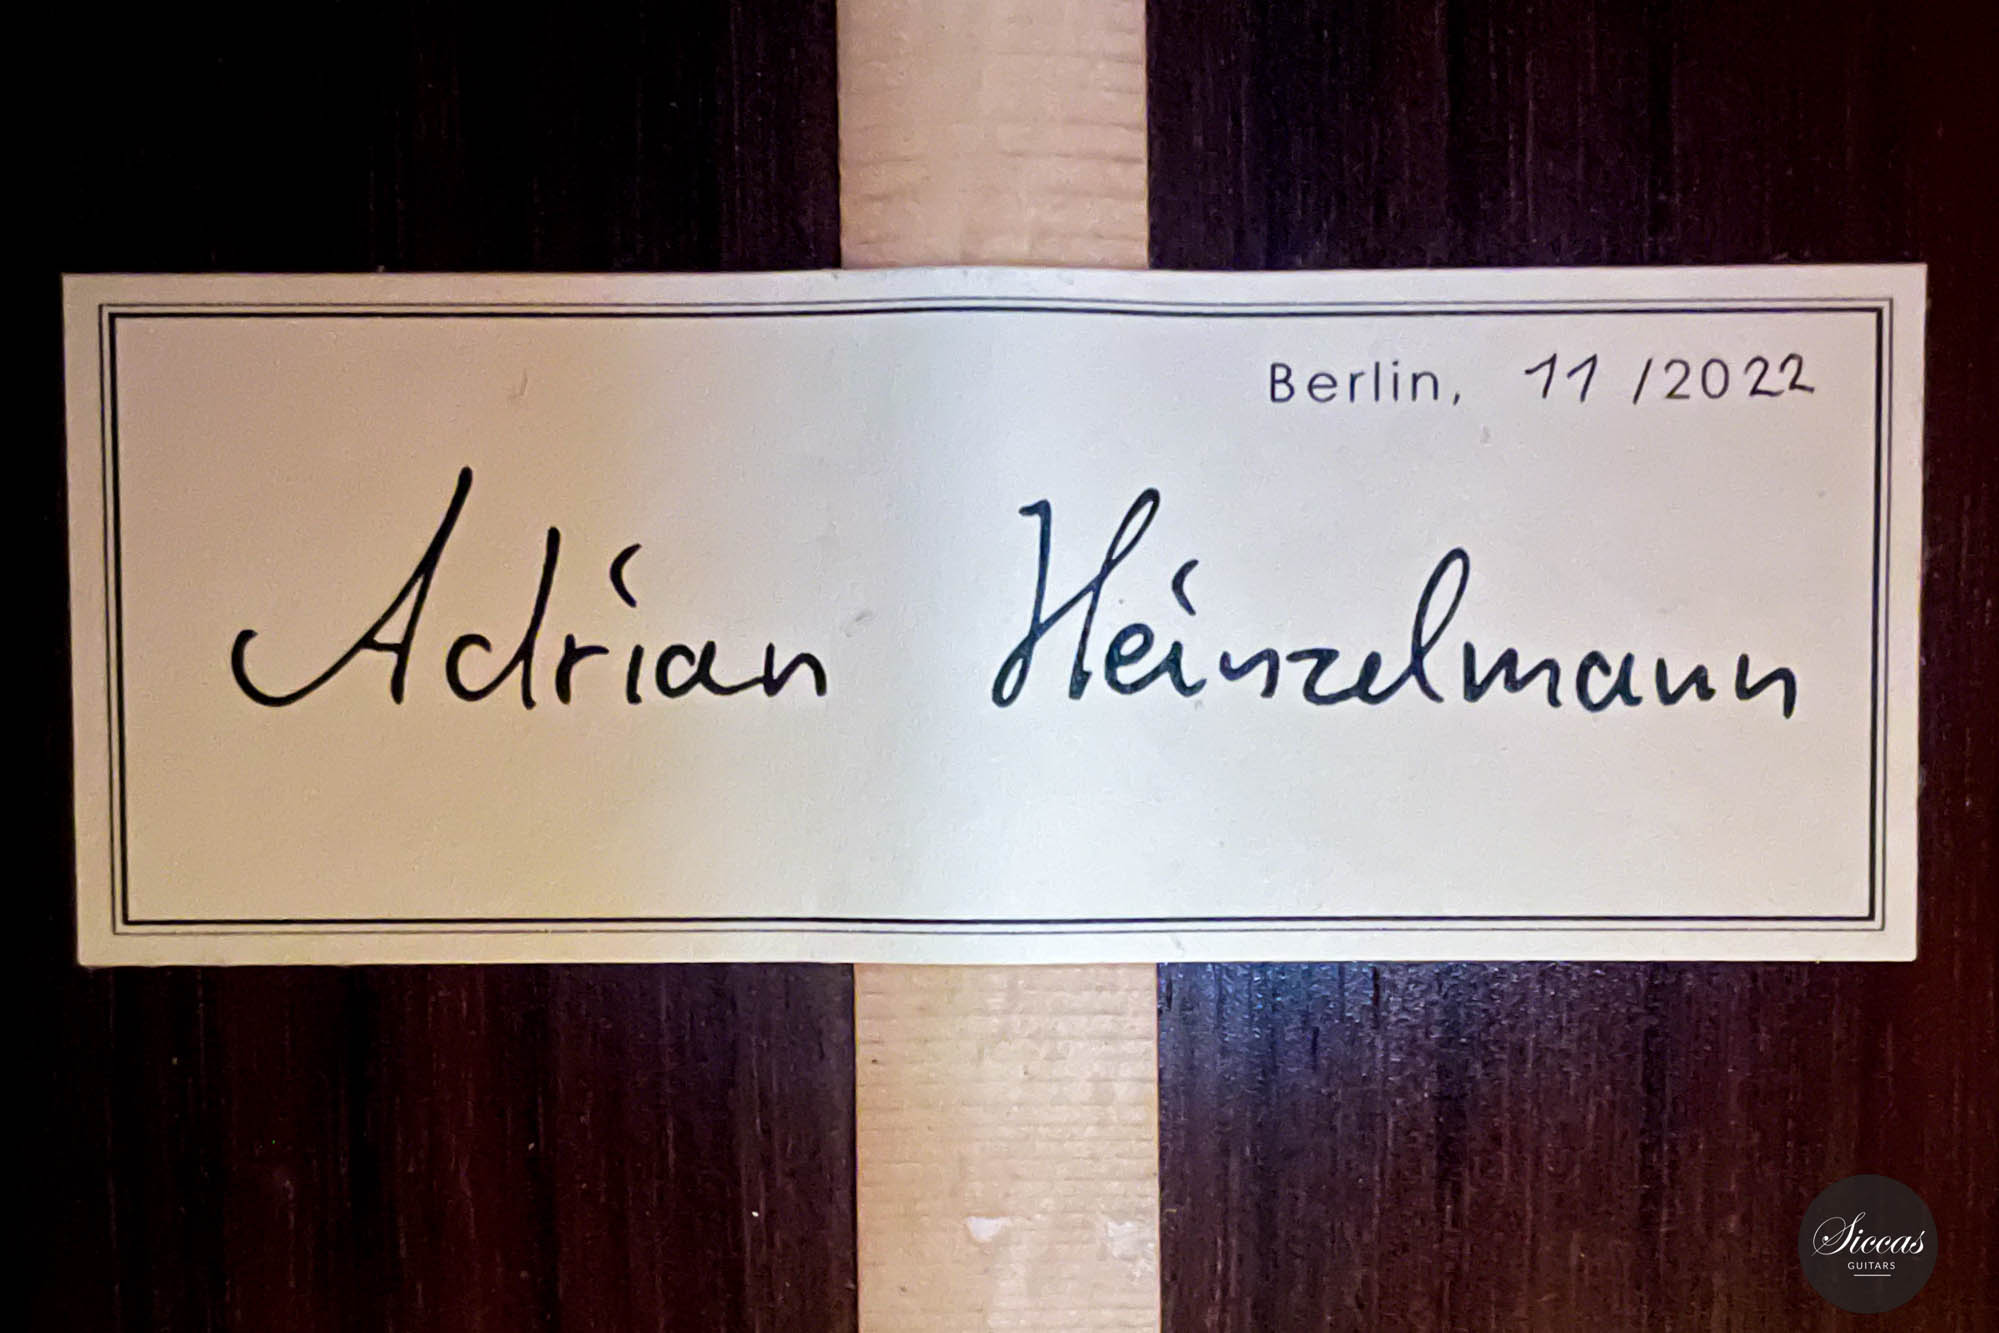 Berlin, 11/2022
Adrian Heinzelmann
Siccas
GUITARS